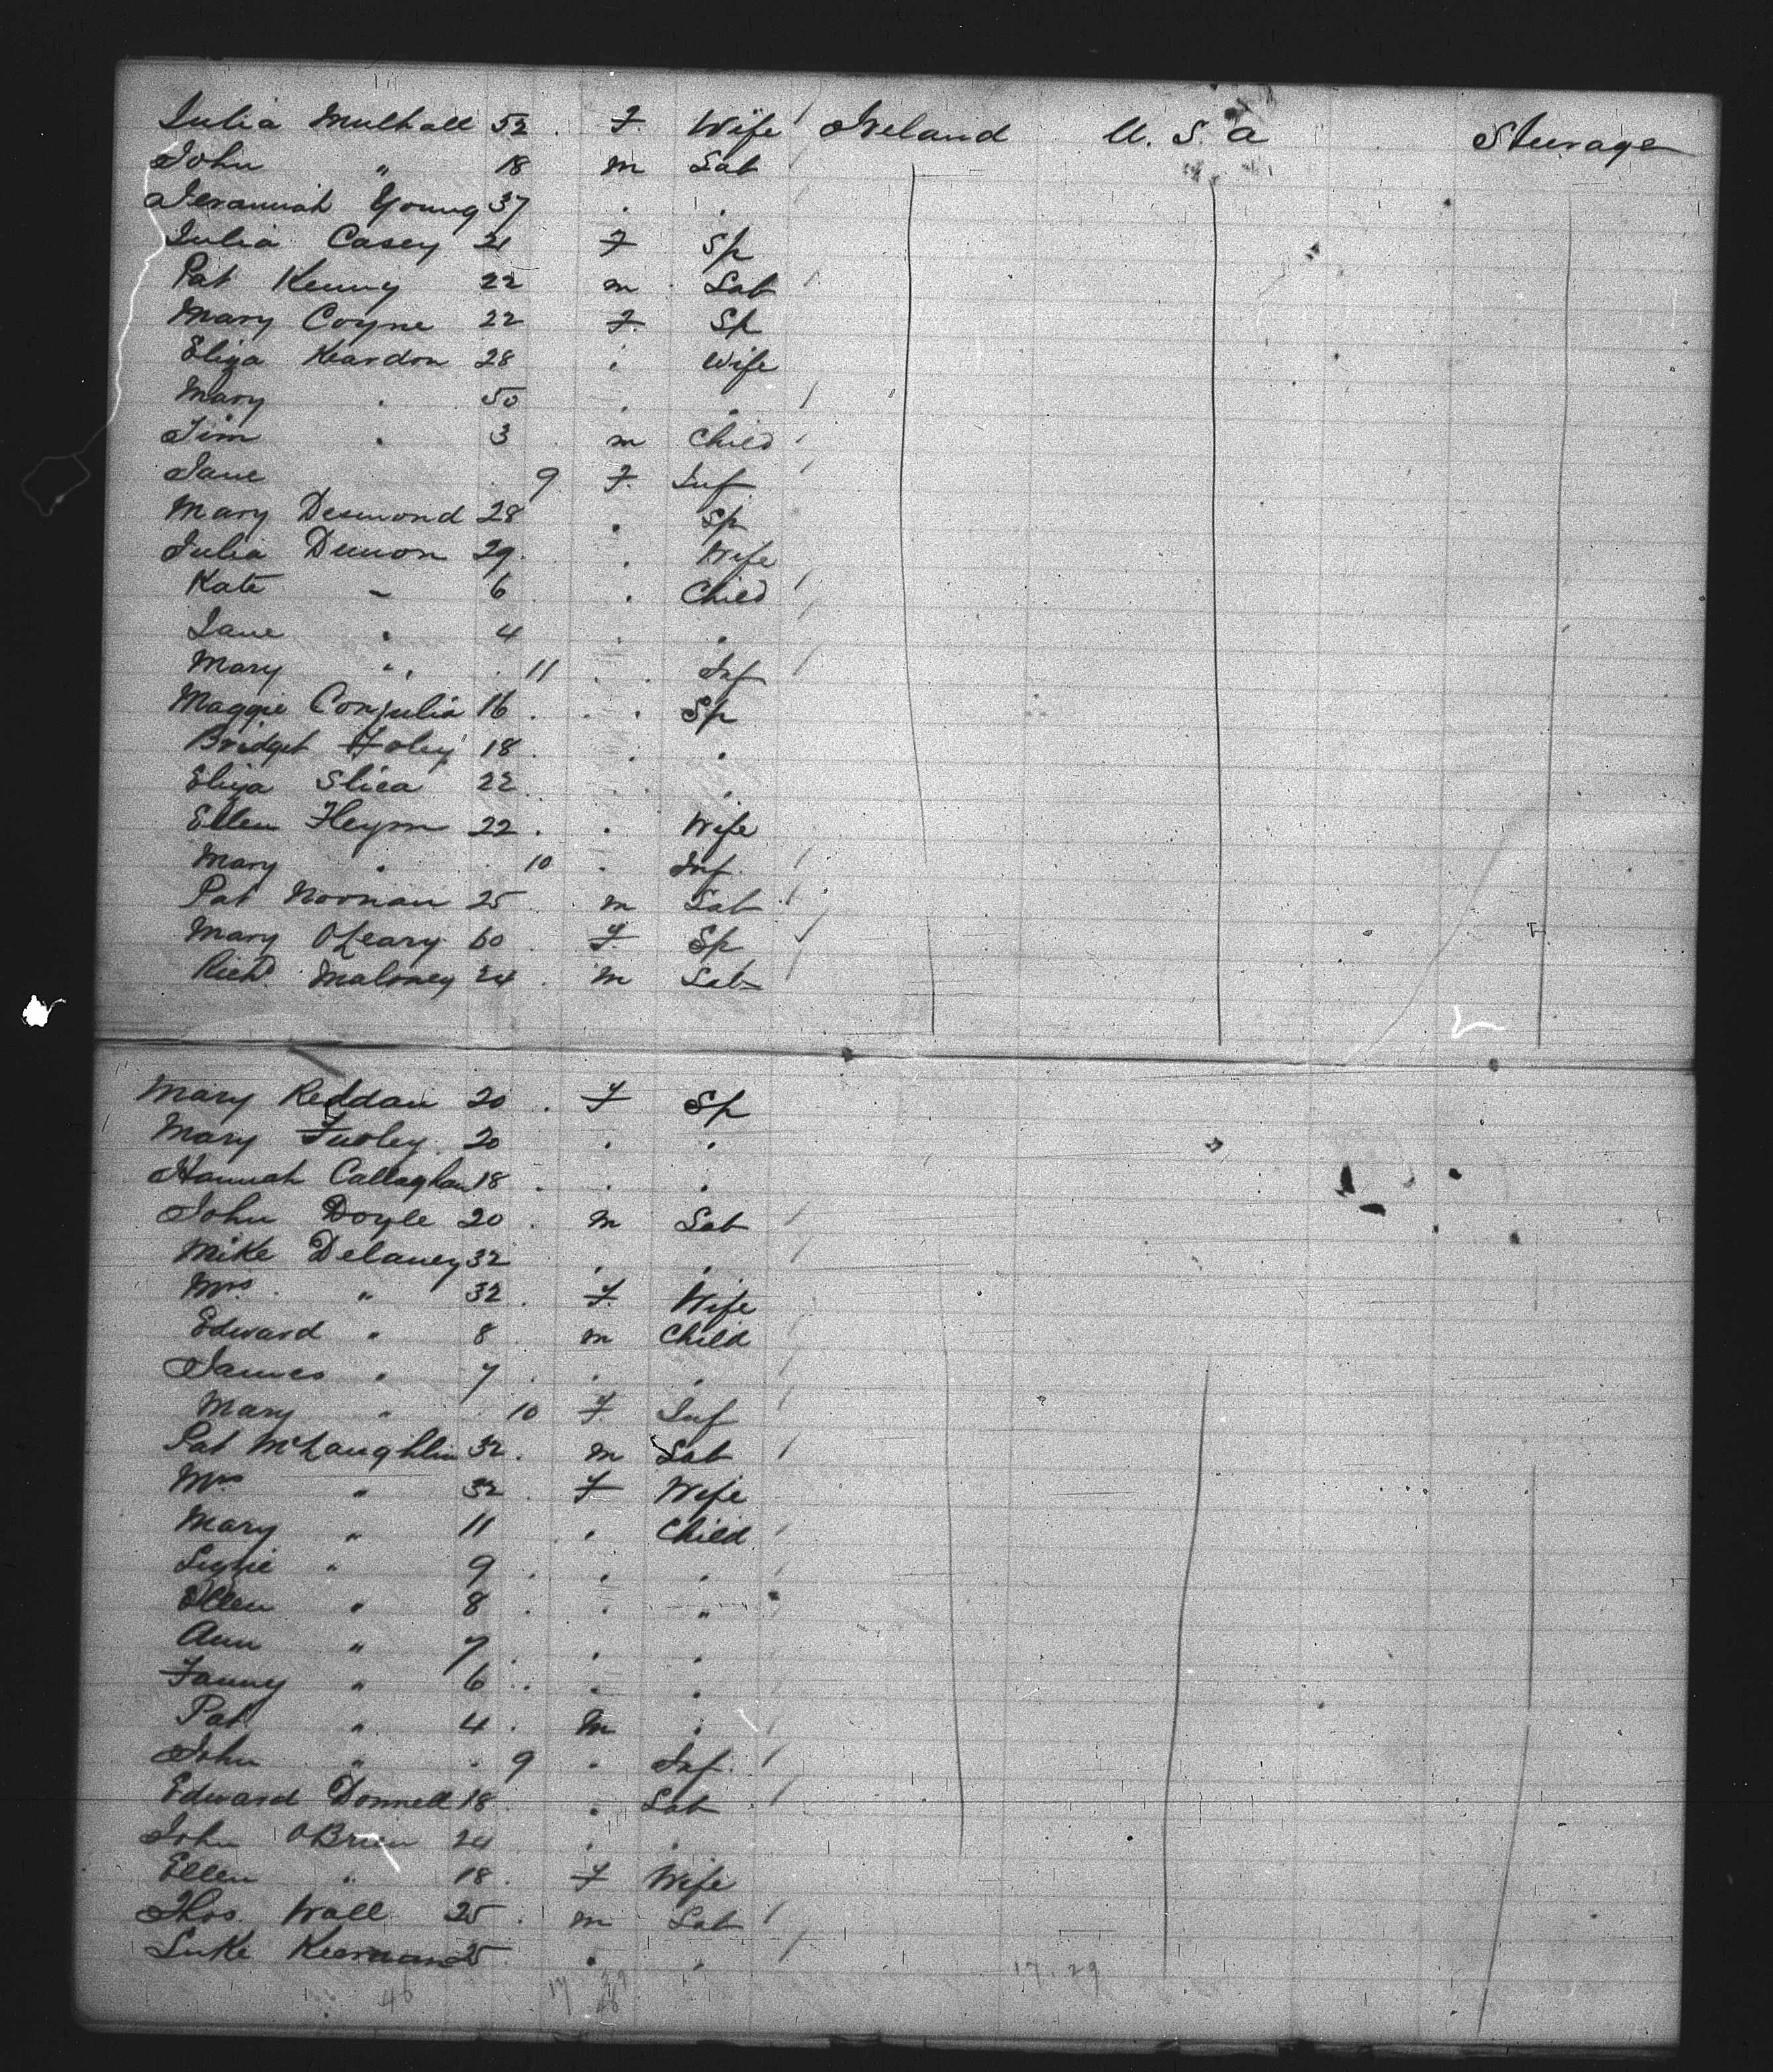 Julia Mulhall 52 . F. Wife Ireland U. S. A Steerage
John " 18 m Lab
Jeramiah Young 37 . .
Julia Casey 21 F Sp
Pat Kenny 22 m Lab
Mary Coyne 22 F. Sp
Eliza Reardon 28 . Wife
Mary . 50 . .
Tim . 3 m Child
Jane 9 F. Inf
Mary Desmond 28 . Sp
Julia 29 . Wife
Kate " 6 . Child
Jane " 4 . .
Mary " 11 . Inf
Maggie 16 . . Sp
Bridget Foley 18 . .
Eliza 22 . .
Ellen 22 . . Wife
Mary . 10 . Inf.
Pat Noonan 25 m Lab
Mary OLeary 60 . F. Sp
Richd. Maloney 24 . m Lab
Mary Reddan 20 . F Sp
Mary 20 . .
Hannah Callaghan 18 . . .
John Doyle 20 . m Lab
Mike Delaney 32 . .
Mrs. " 32 . F. Wife
Edward " 8 . m Child
James " 7 . . .
Mary " 10 F. Inf
Pat McLaughlin 32 . m Lab
Mrs " 32 . F Wife
Mary " 11 . Child
Lizzie " 9 . . .
Ellen " 8 . . "
Ann " 7 . . .
Fanny " 6 . . .
Pat " 4 . m .
John " 9 . Inf.
Edward Donnell 18 . Lab
John OBrien 24 . .
Ellen " 18 . F Wife
Thos. Wall 25 . m Lab
Luke Keernan 25 . .
46 17 29 17 . 29
46